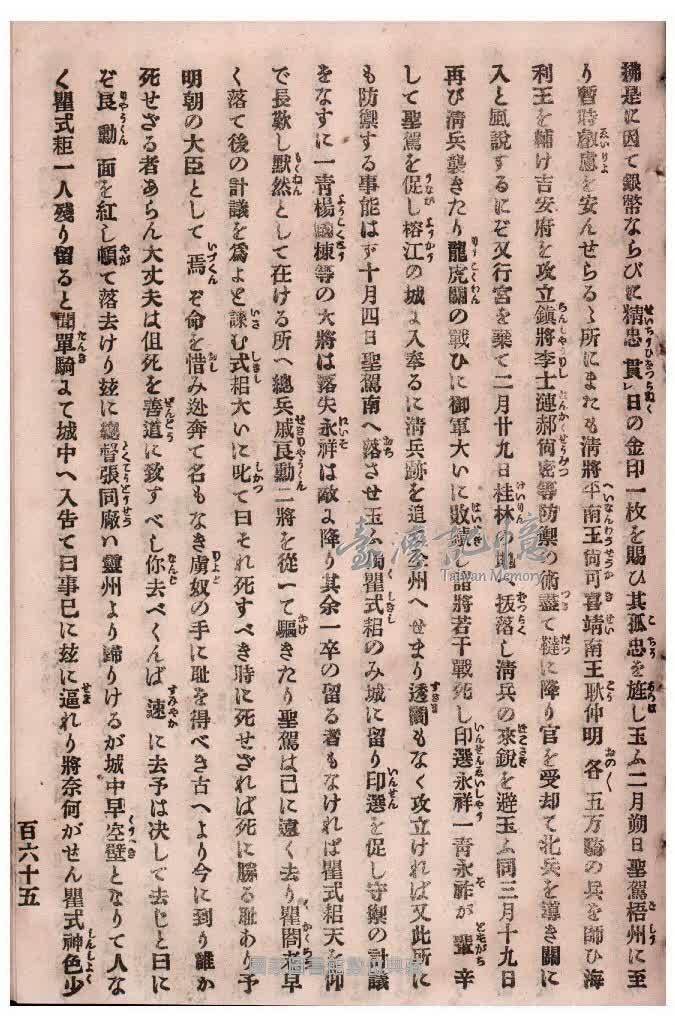 沸是に因て銀幣ならびに精忠貫日の金印一枚を賜ひ其孤忠を旌し玉ふ二月朔日聖駕梧州に至
り暫時叡慮を安んせらるゝ所にまたも淸將平南王尙可喜靖南王耿仲明各五万騎の兵を師ひ海
利王を輔け吉安府を攻立鎮將李士漣郝尙密等防禦の術盡て韃に降り官を受却て北兵を導き關に
入と風說するにぞ又行宮を棄て二月廿九日桂林の地へ拔落し淸兵の來銳を避玉ふ同三月十九日
再び淸兵襲きたり龍虎關の戰ひに御軍大いに敗績し諸將若干戰死し印選永祥一靑永祚が輩辛
して聖駕を促し榕江の城よ入奉るに淸兵跡を追全州へせまり透間もなく攻立ければ又此所に
も防禦する事能はず十月四日聖駕南へ落させ玉ふ獨瞿式耜のみ城に留り印選を促し守禦の計議
をなすに一靑楊國棟等の大將は落失永祥は敵よ降り其余一卒の留る者もなければ瞿式耜天を仰
で長歎し默然として在ける所へ總兵戚良勳二將を從一て驅きたり聖駕は已に遠く去り瞿閣老早
く落て後の計議を爲よと諫む式耜大いに叱て曰それ死すべき時に死せされば死に勝る耻あり予
明朝の大臣として焉ぞ命を惜み迯奔て名もなき虜奴の手に耻を得べき古へより今に到り誰か
死せざる者あらん大丈夫は但死を善道に致すべし你去べくんば速に去予は决して去じと曰に
ぞ良勳面を紅し頓て落去けり玆に總督張同厰い靈州より歸りけるが城中早空壁となりて人な
く瞿式耜一人殘り留ると聞單騎よて城中へ入告て曰事已に玆に逼れり將奈何がせん瞿式神色少
百六十五
臺灣記憶
Taiwan Memory
國家圖書館數位典藏